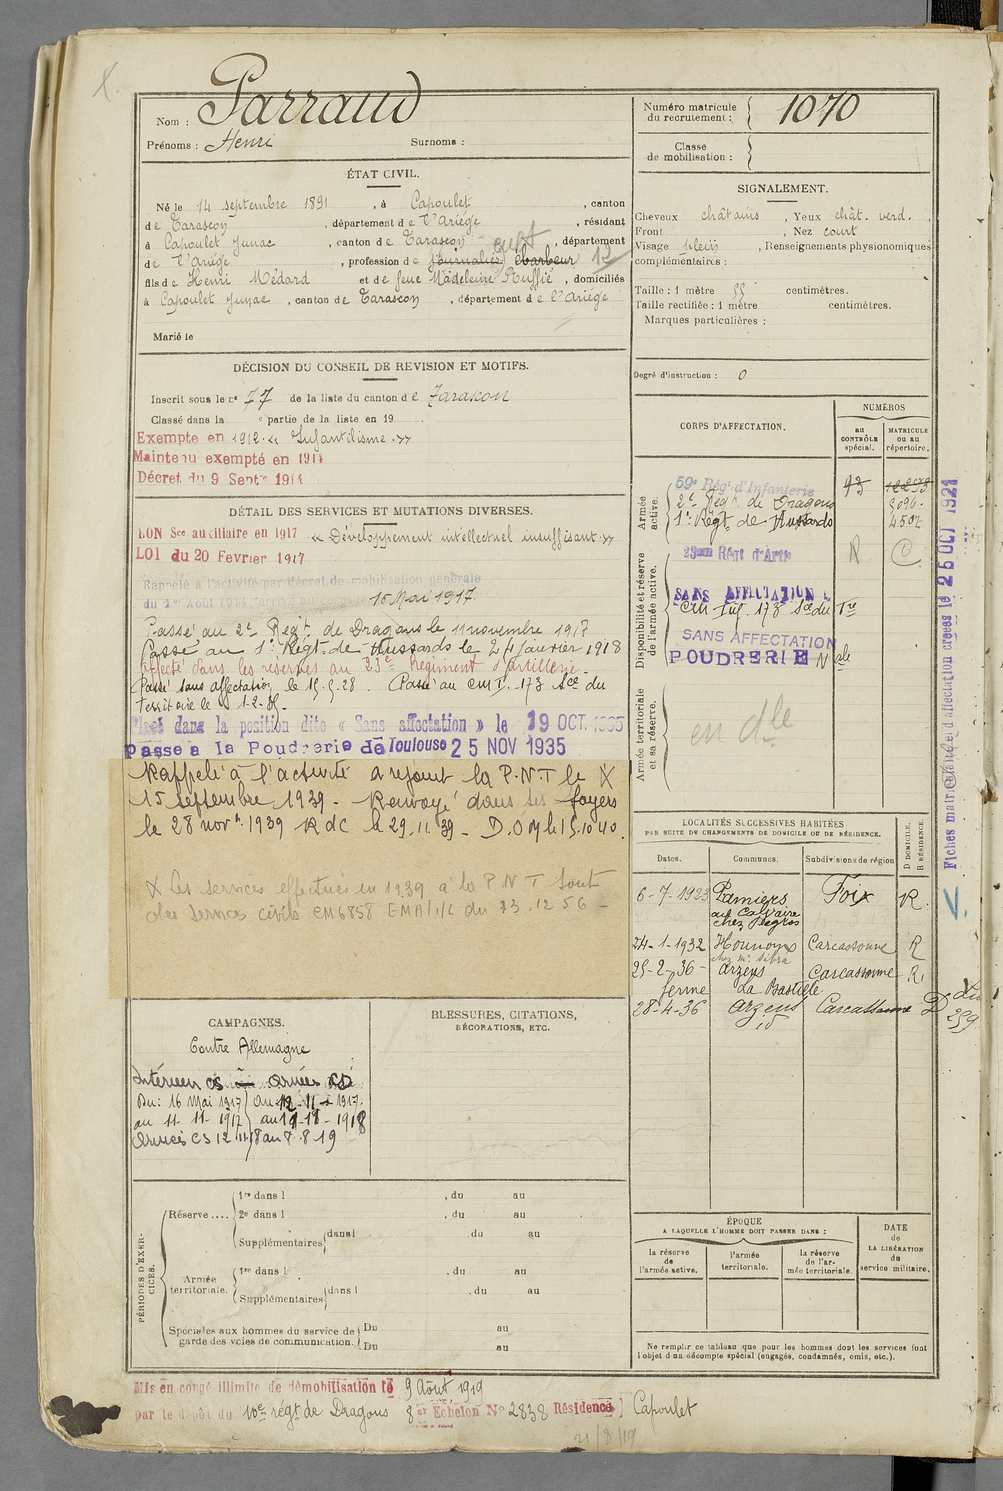 Nom : Parraud
Prénoms : Henri Surnoms :
Numéro matricule du recrutement : 1070
Classe de mobilisation :
ÉTAT CIVIL.
Né le 14 septembre 1891, à Capoulet, canton
de Tarascon, département de l'Ariège, résidant
à Capoulet Junac, canton de Tarascon, département
de l'Ariège, profession de journalier cult
fils de Henri Médard et de feue Madeleine Ruffié, domiciliés
à Capoulet Junac, canton de Tarascon, département de l'Ariége
Marié le
SIGNALEMENT.
Cheveux châtains, Yeux chât. verd.
Front , Nez court
Visage plein, Renseignements physionomiques
complémentaires :
Taille : 1 mètre 55 centimètres.
Taille rectifiée : 1 mètre centimètres.
Marques particulières :
Degré d'instruction : 0
DÉCISION DU CONSEIL DE REVISION ET MOTIFS.
Inscrit sous le n° 77 de la liste du canton de Tarascon
Classé dans la e partie de la liste en 19
Exempte en 1912 « Infantilisme »
Maintenu exempté en 1914
Décret du 9 Septre 1914
DÉTAIL DES SERVICES ET MUTATIONS DIVERSES.
BON Sce auxiliaire en 1917 « Développement intellectuel insuffisant »
LOI du 20 Fevrier 1917
Rappelé à l'activité par décret de mobilisation générale
du 1er Août 1914. 16 Mai 1917.
Passé au 2e Régt de Dragons le 11 novembre 1917
Passé au 1r Régt de Hussards le 24 janvier 1918
Affecté dans les réserves au 23e Régiment d'artillerie.
Passé sans affectation le 15.5.28. Passé au CM I. 173 Sce du
Territoire le 1-2-35.
Placé dans la position dite « Sans affectation » le 19 OCT. 1935
passe a la Poudrerie de Toulouse 25 NOV 1935
Rappelé à l'activité a rejoint la P.N.T le X
15 septembre 1939 - Renvoyé dans ses foyers
le 28 novb 1939 RdC le 29.11.39 - D.O.M le 15.10.40.
X Les services effectués en 1939 à la P N T sont
des services civils CM 6858 EMA/1/L du 23.12.56 -
CORPS D'AFFECTATION.
NUMÉROS
au CONTRÔLE spécial.
MATRICULE ou au répertoire.
Armée active.
59e Régt d'Infanterie 43
2e Régt de Dragons 5096
1r Régt de Hussards 4507
Disponibilité et réserve de l'armée active.
23eme Régt d'Artie R C
SANS AFFECTATION
CM Inf. 173 Sce du Tre
SANS AFFECTATION
POUDRERIE Nale
Armée territoriale et sa réserve.
en dle
Fiches matricule et d'affectation créées le 25 OCT 1921
LOCALITÉS SUCCESSIVES HABITÉES
PAR SUITE DE CHANGEMENTS DE DOMICILE OU DE RÉSIDENCE.
Dates. Communes. Subdivisions de région D DOMICILE. R RÉSIDENCE.
6-7-1923 Pamiers Foix R.
au Calvaire
chez Pegros
24-1-1932 Hounoux Carcassonne R
chez Mr Sibra
25-2-36 - Arzens Carcassonne R.
ferme La Bastide
28-4-36 Arzens Carcassonne D
id
CAMPAGNES.
Contre Allemagne
Intérieur CS armées CD
Du : 16 Mai 1917 au 12-11-1917.
au 11-11-1917 au 11-18-1918
Armées CS 12 11 18 au 8.8.19
BLESSURES, CITATIONS,
DÉCORATIONS, ETC.
PÉRIODES D'EXERCICES.
Réserve.... 1re dans l , du au
2e dans l , du au
Supplémentaires dans l , du au
Armée territoriale. 1re dans l , du au
Supplémentaires dans l , du au
Spéciales aux hommes du service de garde des voies de communication. Du au
Du au
ÉPOQUE
A LAQUELLE L'HOMME DOIT PASSER DANS :
la réserve de l'armée active. l'armée territoriale. la réserve de l'armée territoriale.
DATE de LA LIBÉRATION du service militaire.
Ne remplir ce tableau que pour les hommes dont les services font
l'objet d'un décompte spécial (engagés, condamnés, omis, etc.).
Mis en congé illimité de démobilisation le 9 Août 1919
par le dépôt du 10e régt de Dragons 8er Echelon N° 2838 Résidence Capoulet
21/8/19